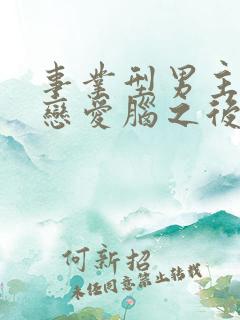 事業型男主
戀愛腦之後
何新招
未經同意禁止轉載